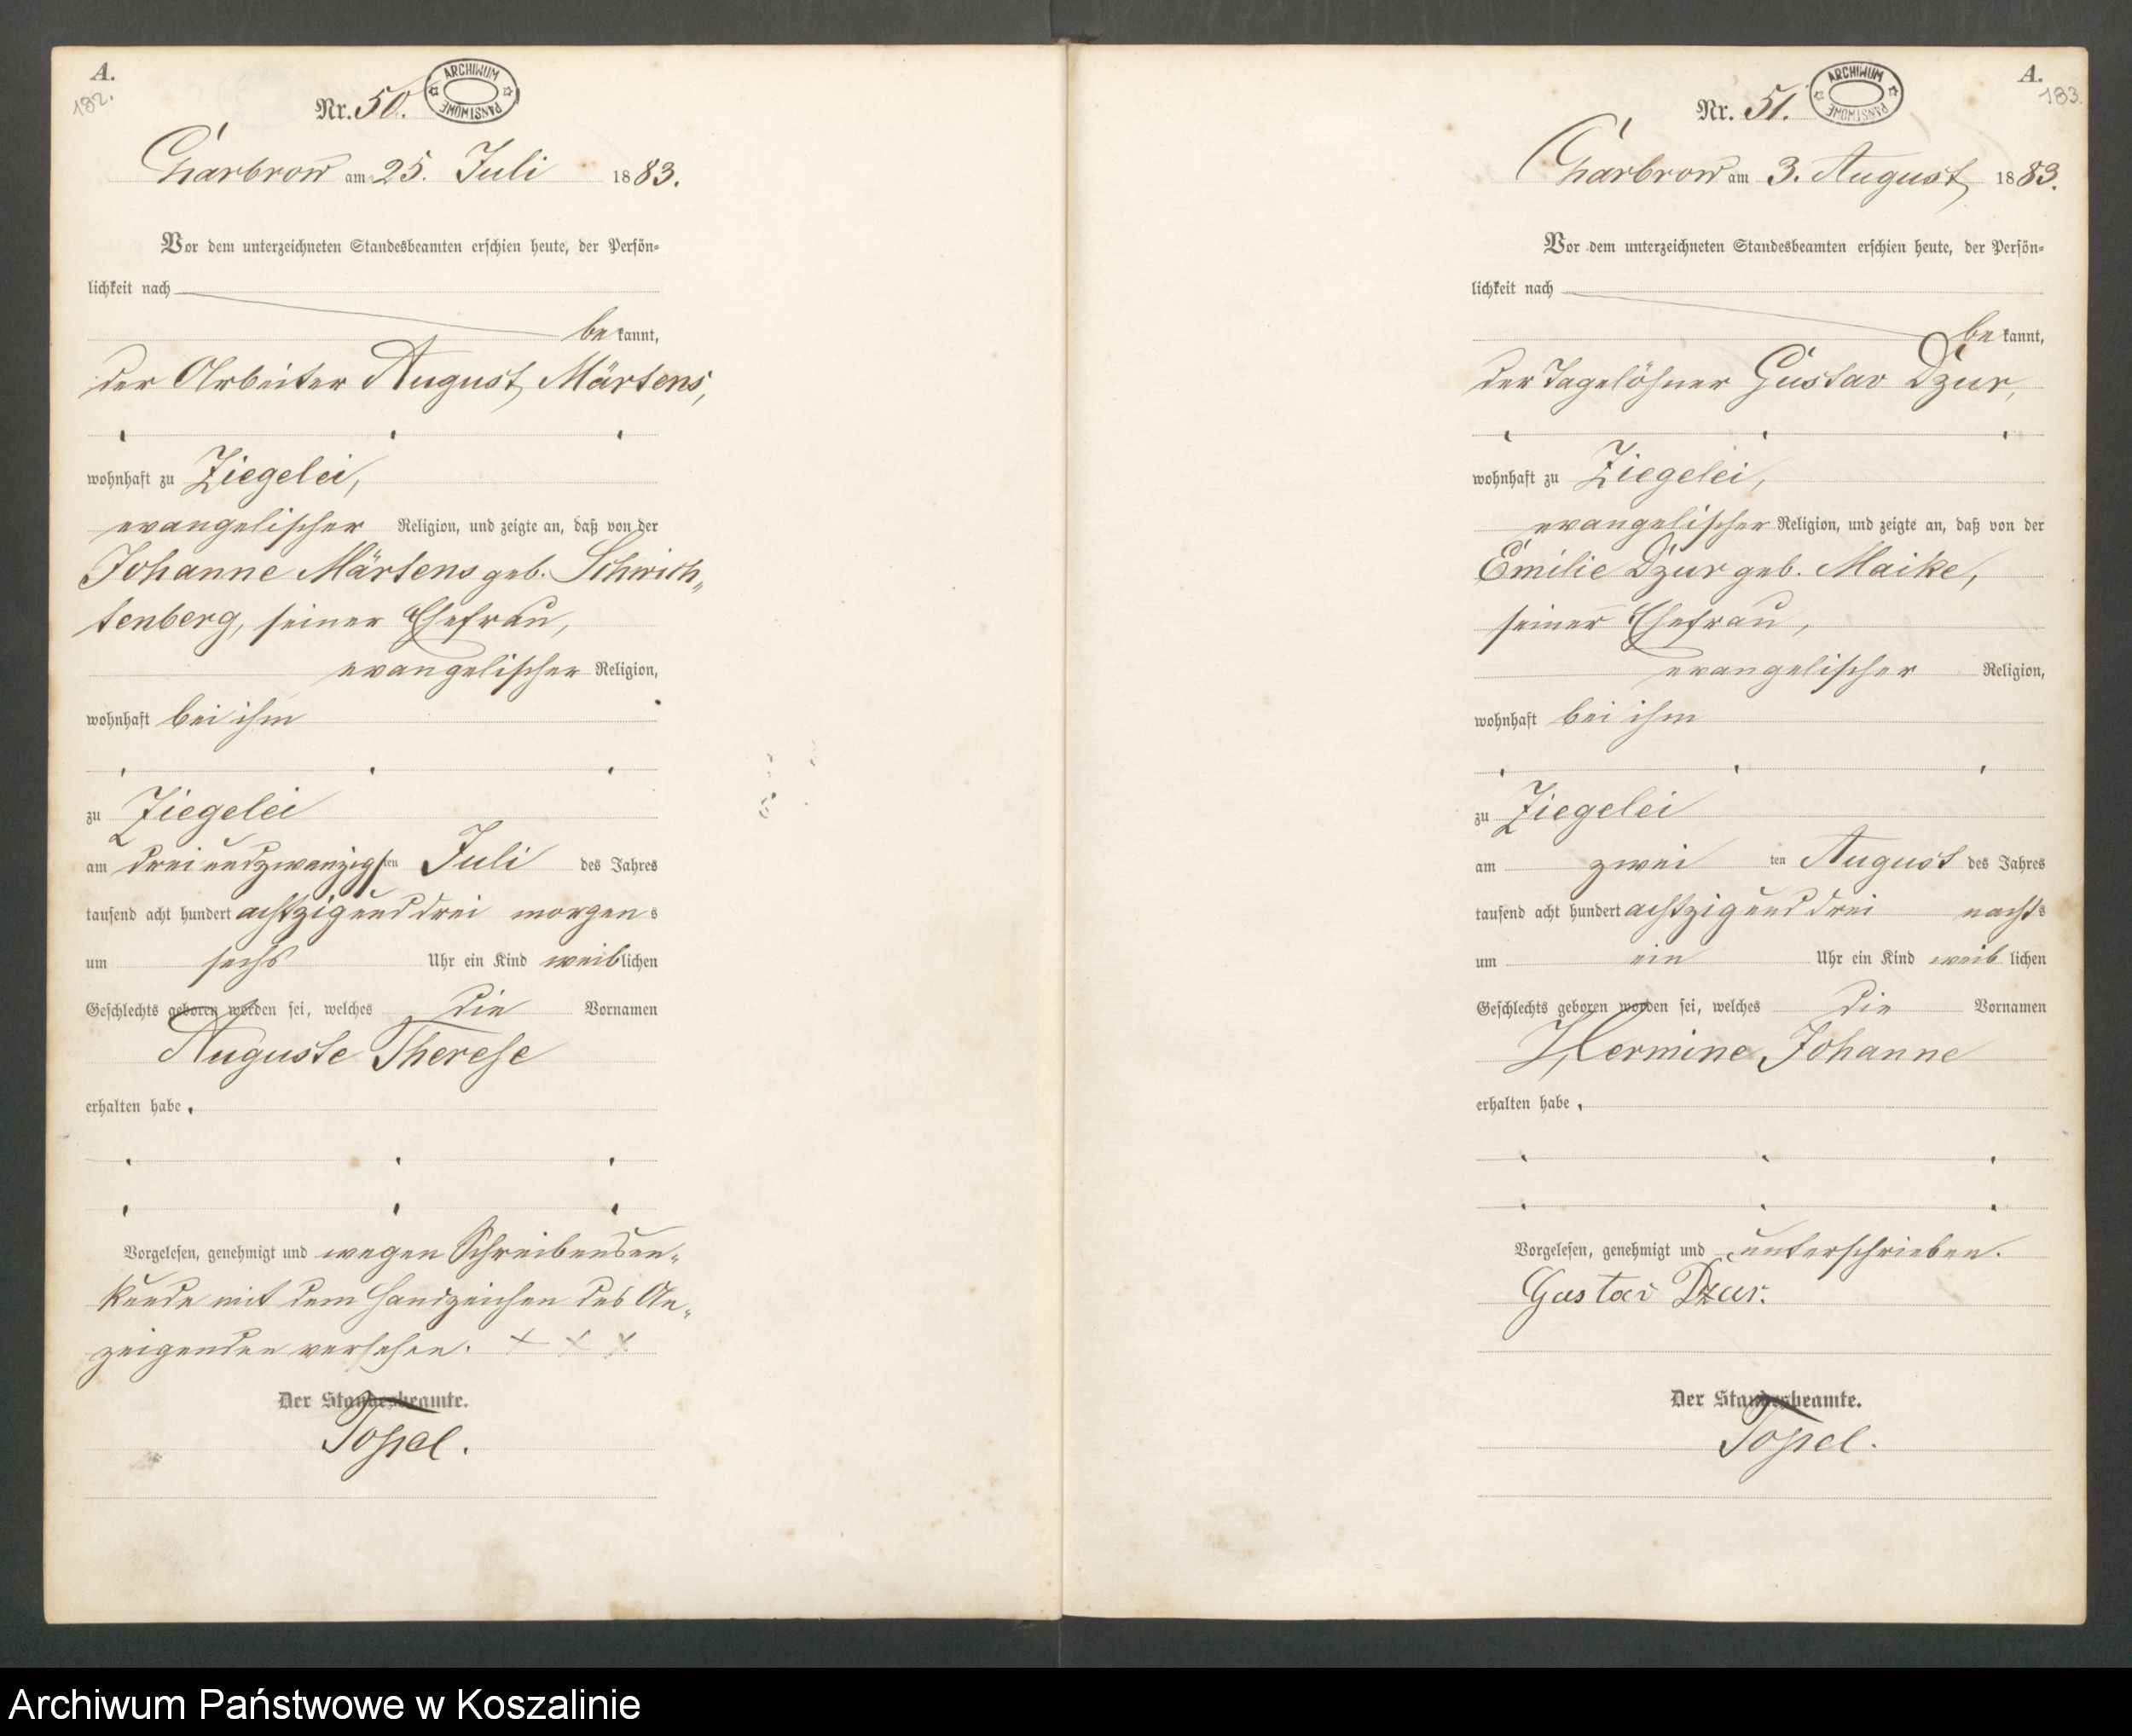 A.
182.
Nr. 50.
ARCHIWUM PAŃSTWOWE
Charbrow am 25. Juli 1883.
Vor dem unterzeichneten Standesbeamten erschien heute, der Persön-
lichkeit nach
bekannt,
der Arbeiter August Märtens,
wohnhaft zu Ziegelei,
evangelischer Religion, und zeigte an, daß von der
Johanne Märtens geb. Schwich-
tenberg, seiner Ehefrau,
evangelischer Religion,
wohnhaft bei ihm
zu Ziegelei
am dreiundzwanzigsten Juli des Jahres
tausend acht hundert achtzig und drei morgens
um sechs Uhr ein Kind weiblichen
Geschlechts geboren worden sei, welches die Vornamen
Auguste Therese
erhalten habe.
Vorgelesen, genehmigt und wegen Schreibensun-
kunde mit dem Handzeichen des An-
zeigenden versehen. + + +
Der Standesbeamte.
Topel.
A.
183.
Nr. 51.
ARCHIWUM PAŃSTWOWE
Charbrow am 3. August 1883.
Vor dem unterzeichneten Standesbeamten erschien heute, der Persön-
lichkeit nach
bekannt,
der Tagelöhner Gustav Dzur,
wohnhaft zu Ziegelei,
evangelischer Religion, und zeigte an, daß von der
Emilie Dzur geb. Maike,
seiner Ehefrau,
evangelischer Religion,
wohnhaft bei ihm
zu Ziegelei
am zwei ten August des Jahres
tausend acht hundert achtzig und drei nachts
um ein Uhr ein Kind weiblichen
Geschlechts geboren worden sei, welches die Vornamen
Hermine Johanne
erhalten habe.
Vorgelesen, genehmigt und unterschrieben.
Gustav Dzur.
Der Standesbeamte.
Topel.
Archiwum Państwowe w Koszalinie